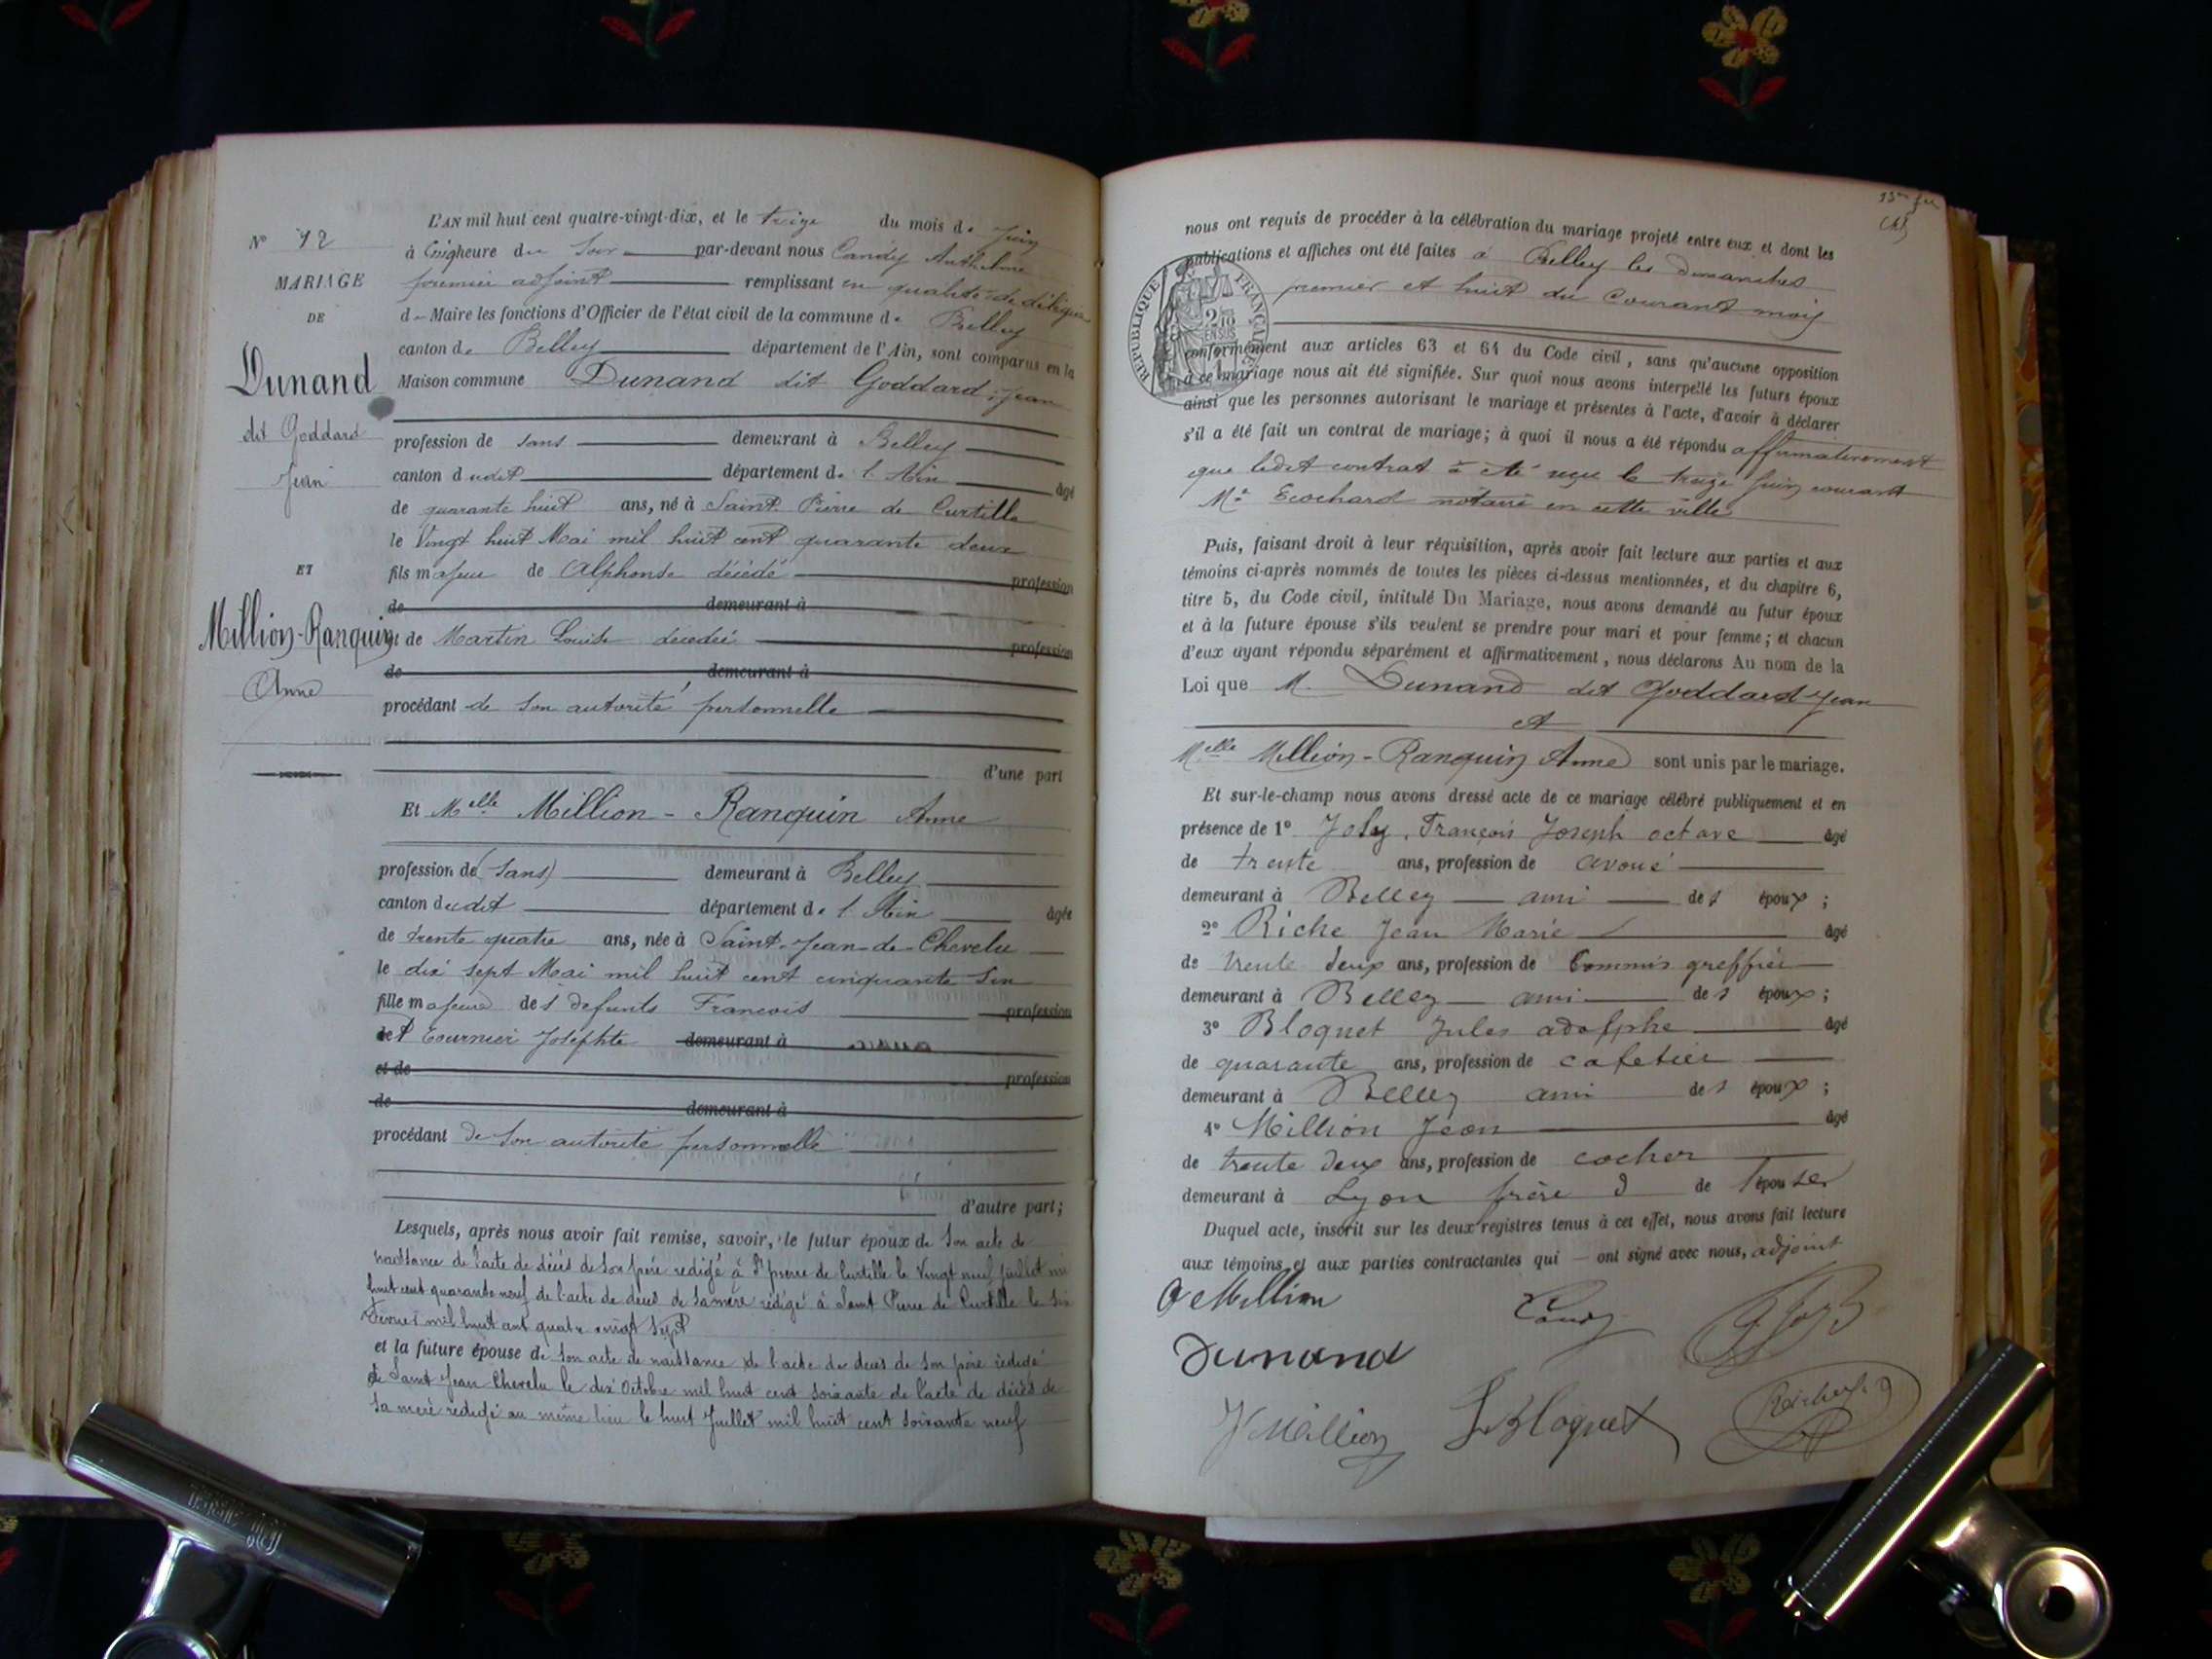 L'AN mil huit cent quatre-vingt-dix, et le treize du mois de Juin
N° 12
à cinq heure du Soir par-devant nous Candy Anthelme
MARIAGE
premier adjoint remplissant en qualité de délégué
DE
de Maire les fonctions d'Officier de l'état civil de la commune de Belley
canton de Belley département de l'Ain, sont comparus en la
Dunand
Maison commune Dunand dit Goddard, Jean
dit Goddard
profession de sans demeurant à Belley
Jean
canton dudit département de l'Ain âgé
de quarante huit ans, né à Saint Pierre de Curtille
le Vingt huit Mai mil huit cent quarante deux
ET
fils majeur de Alphonse décédé profession
de demeurant à
Million-Ranquin
et de Martin Louise décédée profession
de demeurant à
Anne
procédant de son autorité personnelle
d'une part
Et Melle Million - Ranquin Anne
profession de (sans) demeurant à Belley
canton dudit département de l'Ain âgée
de trente quatre ans, née à Saint-Jean-de-Chevelu
le dix sept Mai mil huit cent cinquante six
fille majeure des défunts François profession
et Tournier Josephte demeurant à
et de profession
de demeurant à
procédant de son autorité personnelle
d'autre part;
Lesquels, après nous avoir fait remise, savoir, le futur époux de son acte de
naissance de l'acte de décès de son père rédigé à St pierre de Curtille le Vingt neuf Juillet mil
huit cent quarante neuf de l'acte de décès de sa mère rédigé à Saint Pierre de Curtille le six
Février mil huit cent quatre vingt sept
et la future épouse de son acte de naissance de l'acte de décès de son père rédigé
à Saint Jean Chevelu le dix Octobre mil huit cent soixante de l'acte de décès de
sa mère rédigé au même lieu le huit Juillet mil huit cent soixante neuf
nous ont requis de procéder à la célébration du mariage projeté entre eux et dont les
publications et affiches ont été faites à Belley les dimanches
premier et huit du Courant mois
RÉPUBLIQUE FRANÇAISE
2/10 EN SUS
conformément aux articles 63 et 64 du Code civil, sans qu'aucune opposition
à ce mariage nous ait été signifiée. Sur quoi nous avons interpellé les futurs époux
ainsi que les personnes autorisant le mariage et présentes à l'acte, d'avoir à déclarer
s'il a été fait un contrat de mariage; à quoi il nous a été répondu affirmativement
que ledit contrat a été reçu le treize Juin courant
Me Ecochard notaire en cette ville
Puis, faisant droit à leur réquisition, après avoir fait lecture aux parties et aux
témoins ci-après nommés de toutes les pièces ci-dessus mentionnées, et du chapitre 6,
titre 5, du Code civil, intitulé Du Mariage, nous avons demandé au futur époux
et à la future épouse s'ils veulent se prendre pour mari et pour femme; et chacun
d'eux ayant répondu séparément et affirmativement, nous déclarons Au nom de la
Loi que M. Dunand dit Goddard Jean
et
Melle Million-Ranquin Anne sont unis par le mariage.
Et sur-le-champ nous avons dressé acte de ce mariage célébré publiquement et en
présence de 1° Joly, François Joseph octave âgé
de trente ans, profession de avoué
demeurant à Belley ami des époux;
2° Riche Jean Marie âgé
de trente deux ans, profession de Commis greffier
demeurant à Belley ami des époux;
3° Bloquet Jules adolphe âgé
de quarante ans, profession de cafetier
demeurant à Belley ami des époux;
4° Million Jean âgé
de trente deux ans, profession de cocher
demeurant à Lyon frère de l'épouse
Duquel acte, inscrit sur les deux registres tenus à cet effet, nous avons fait lecture
aux témoins et aux parties contractantes qui ont signé avec nous, adjoint
A Million
Candy
Dunand
J Million
Bloquet